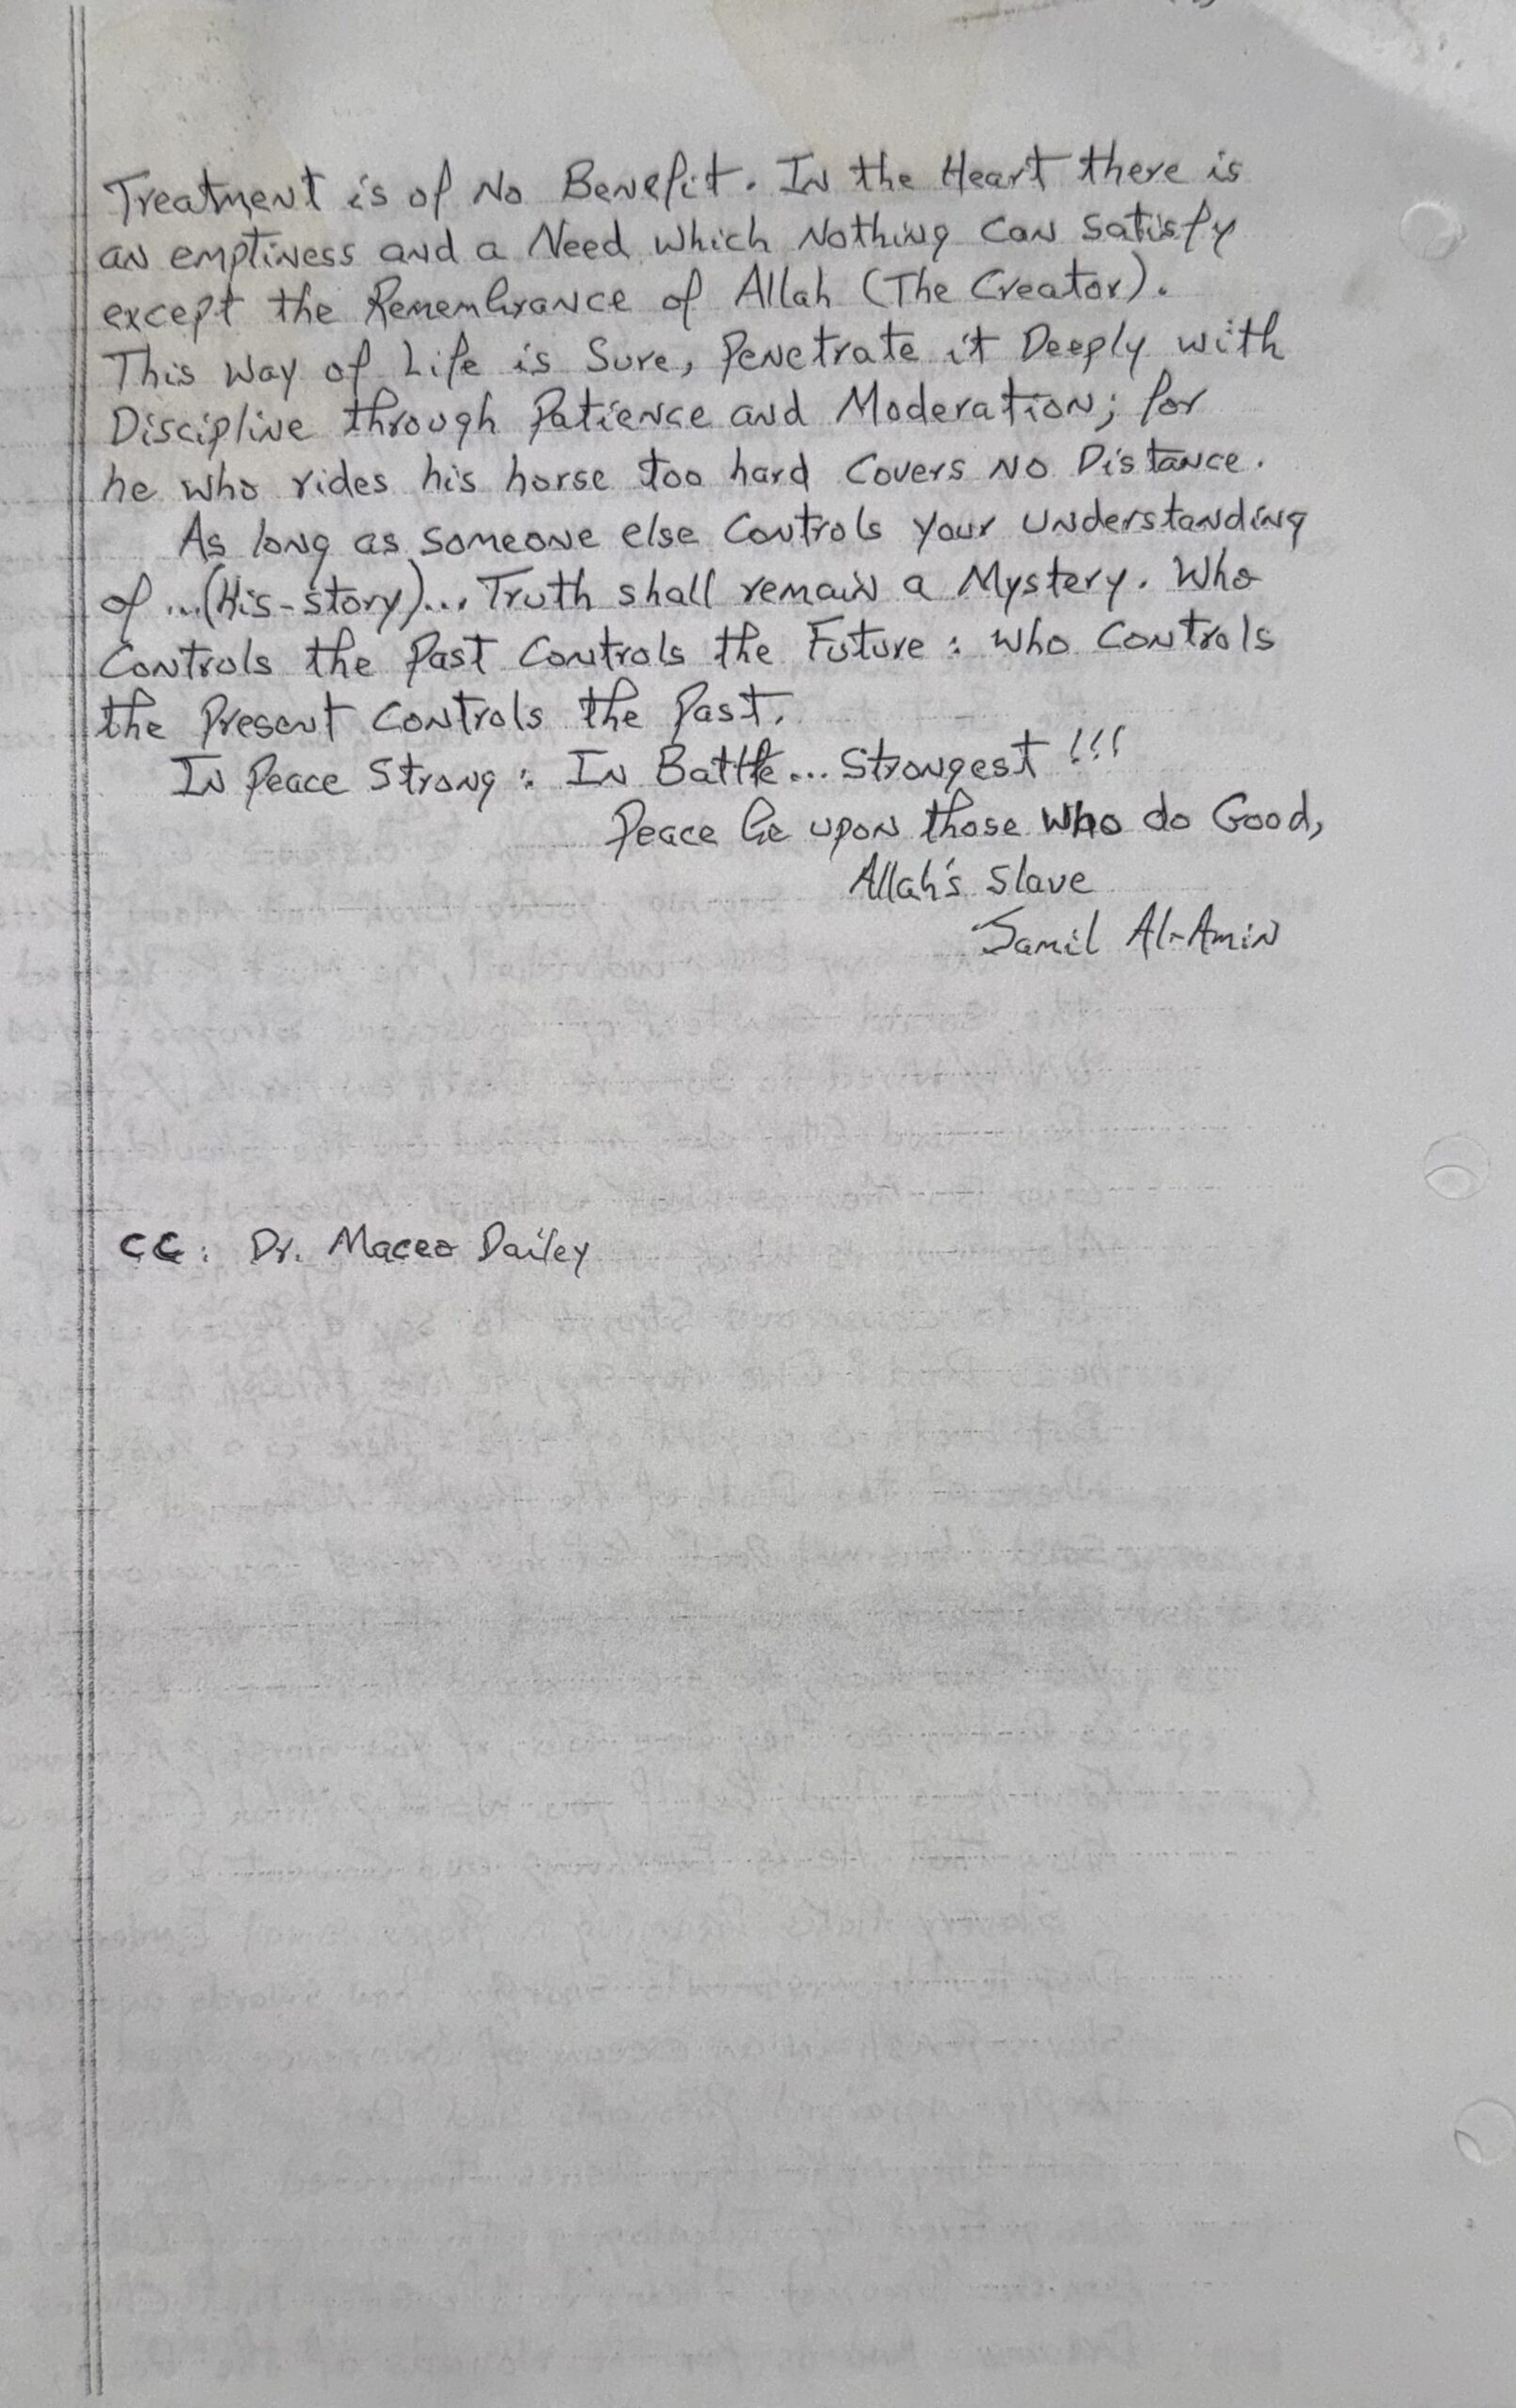 Treatment is of No Benefit. In the Heart there is
an emptiness and a Need which Nothing Can satisfy
except the Remembrance of Allah (The Creator).
This Way of Life is Sure, Penetrate it Deeply with
Discipline through Patience and Moderation; for
he who rides his horse too hard Covers No Distance.
As long as someone else Controls your Understanding
of...(His-story)... Truth shall remain a Mystery. Who
Controls the Past Controls the Future: Who Controls
the Present Controls the Past.
In Peace Strong: In Battle... Strongest!!!
Peace be upon those who do Good,
Allah's slave
Jamil Al-Amin
CC: Dr. Maceo Dailey